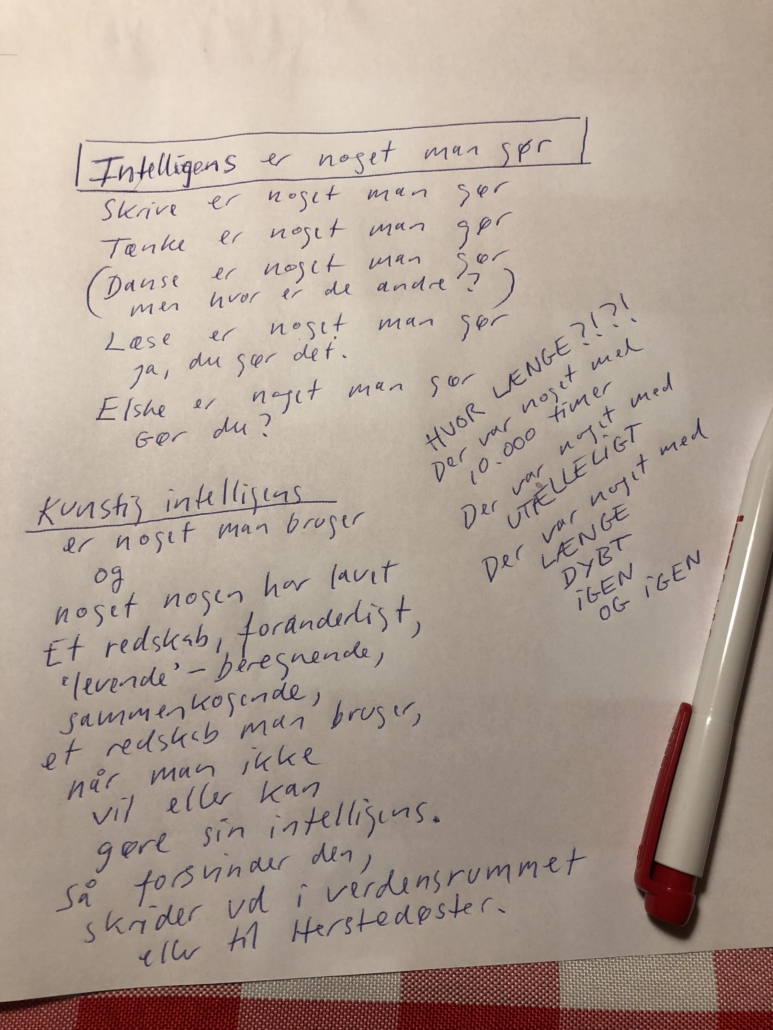 Intelligens er noget man gør
Skrive er noget man gør
Tænke er noget man gør
(Danse er noget man gør
men hvor er de andre?)
Læse er noget man gør
ja, du gør det.
Elske er noget man gør
Gør du?
HVOR LÆNGE?!?!
Der var noget med
10.000 timer
Der var noget med
UTÆLLELIGT
Der var noget med
LÆNGE
DYBT
IGEN
OG IGEN
Kunstig intelligens
er noget man bruger
og
noget nogen har lavet
Et redskab, foranderligt,
'levende' - beregnende,
sammenkogende,
et redskab man bruger,
når man ikke
vil eller kan
gøre sin intelligens.
Så forsvinder den,
skrider ud i verdensrummet
eller til Herstedøster.